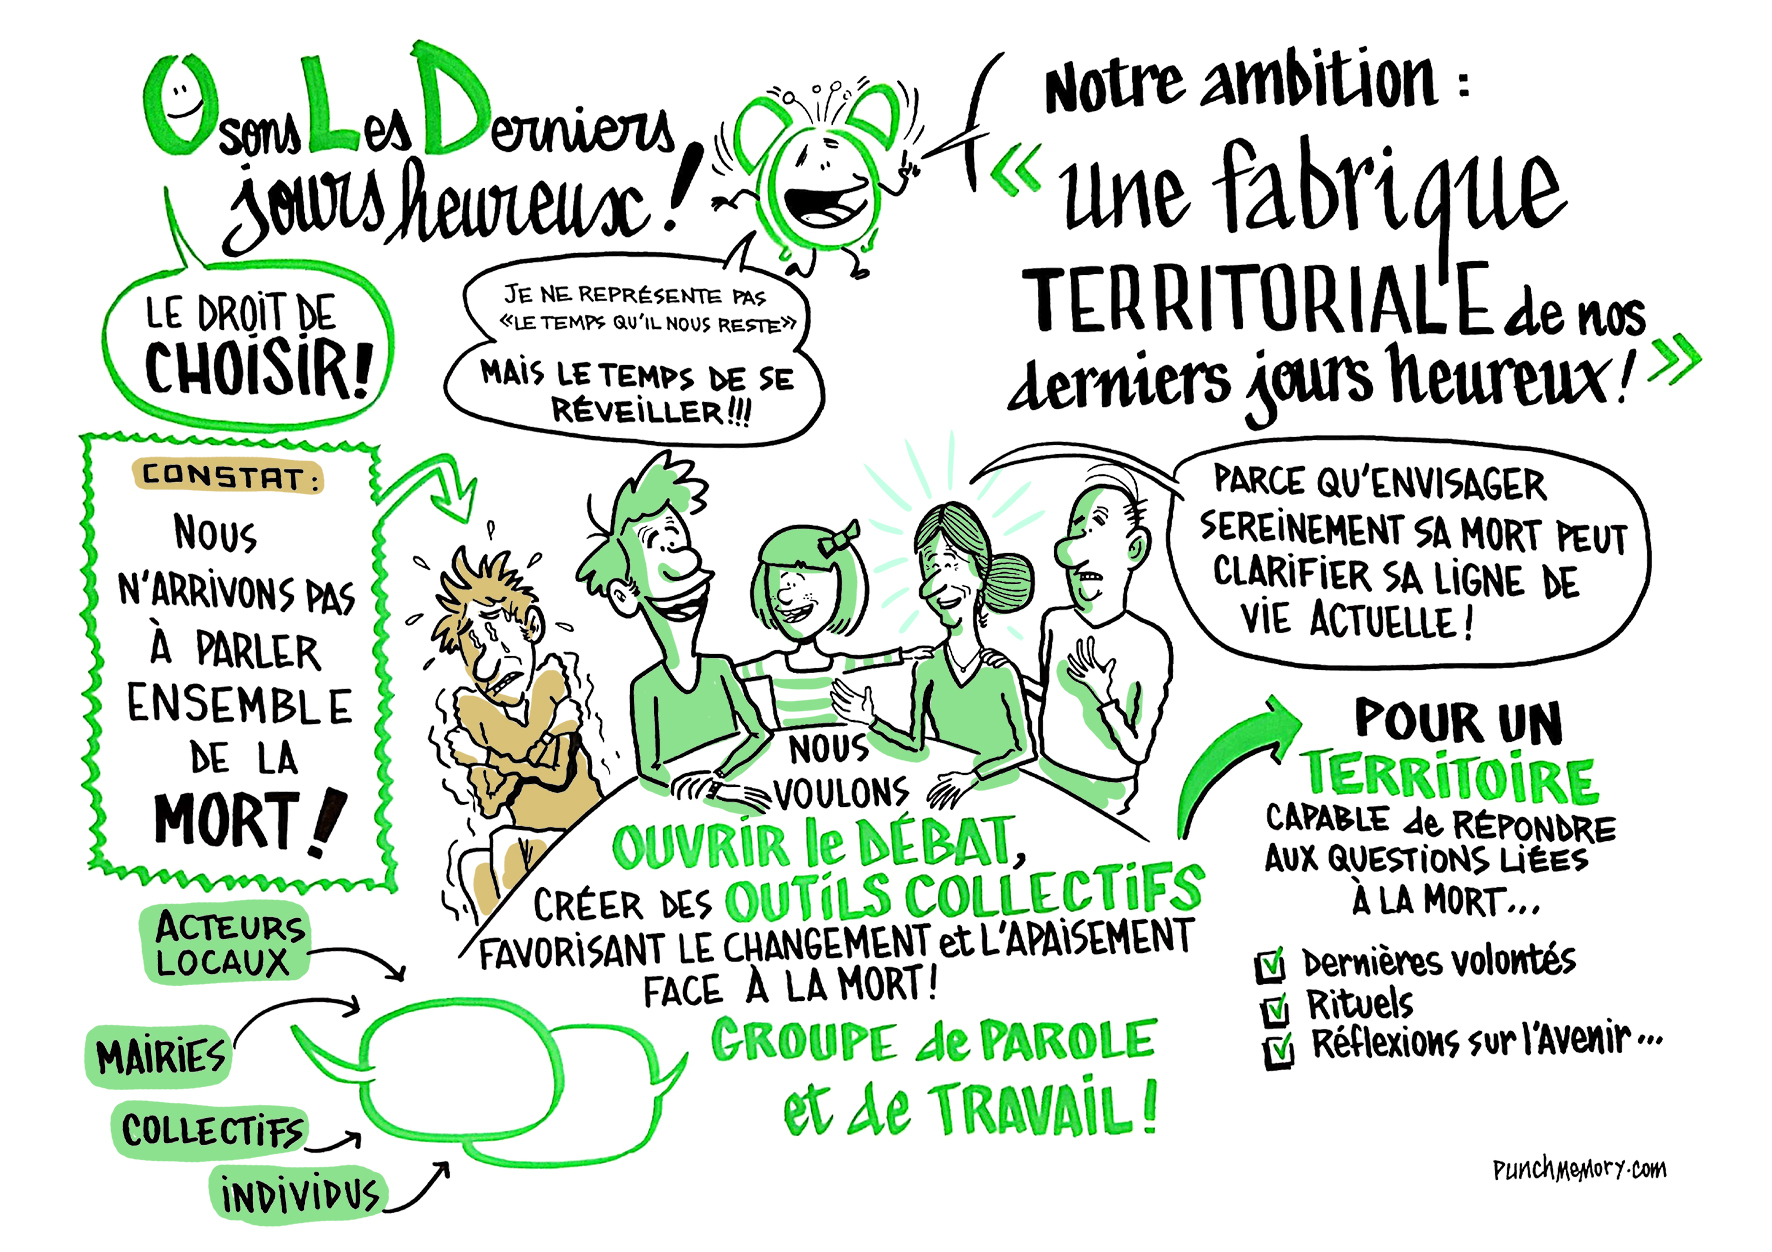 Osons Les Derniers
jours heureux !
LE DROIT DE
CHOISIR !
JE NE REPRÉSENTE PAS
«LE TEMPS QU'IL NOUS RESTE»
MAIS LE TEMPS DE SE
RÉVEILLER !!!
Notre ambition :
« une fabrique
TERRITORIALE de nos
derniers jours heureux ! »
CONSTAT :
NOUS
N'ARRIVONS PAS
À PARLER
ENSEMBLE
DE LA
MORT !
PARCE QU'ENVISAGER
SEREINEMENT SA MORT PEUT
CLARIFIER SA LIGNE DE
VIE ACTUELLE !
NOUS
VOULONS
OUVRIR le DÉBAT,
CRÉER DES OUTILS COLLECTIFS
FAVORISANT LE CHANGEMENT et L'APAISEMENT
FACE À LA MORT !
POUR UN
TERRITOIRE
CAPABLE de RÉPONDRE
AUX QUESTIONS LIÉES
À LA MORT...
Dernières volontés
Rituels
Réflexions sur l'Avenir...
ACTEURS
LOCAUX
MAIRIES
COLLECTIFS
INDIVIDUS
GROUPE de PAROLE
et de TRAVAIL !
PUNCHMEMORY.COM